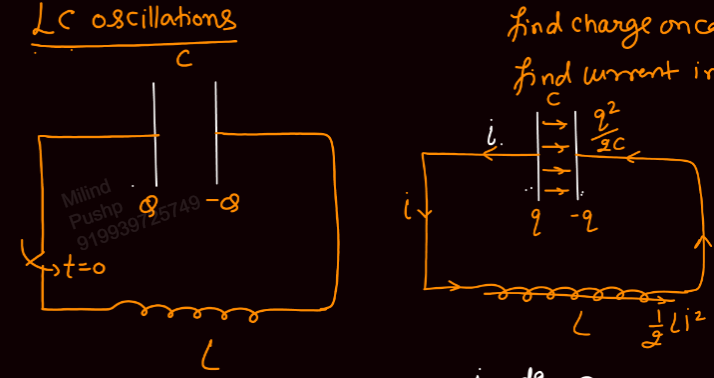 LC oscillations
C
Q -Q
t=0
L
Milind
Pushp
919939725749
find charge on
find current in
C
i
q²/2C
i
q -q
L
½Li²